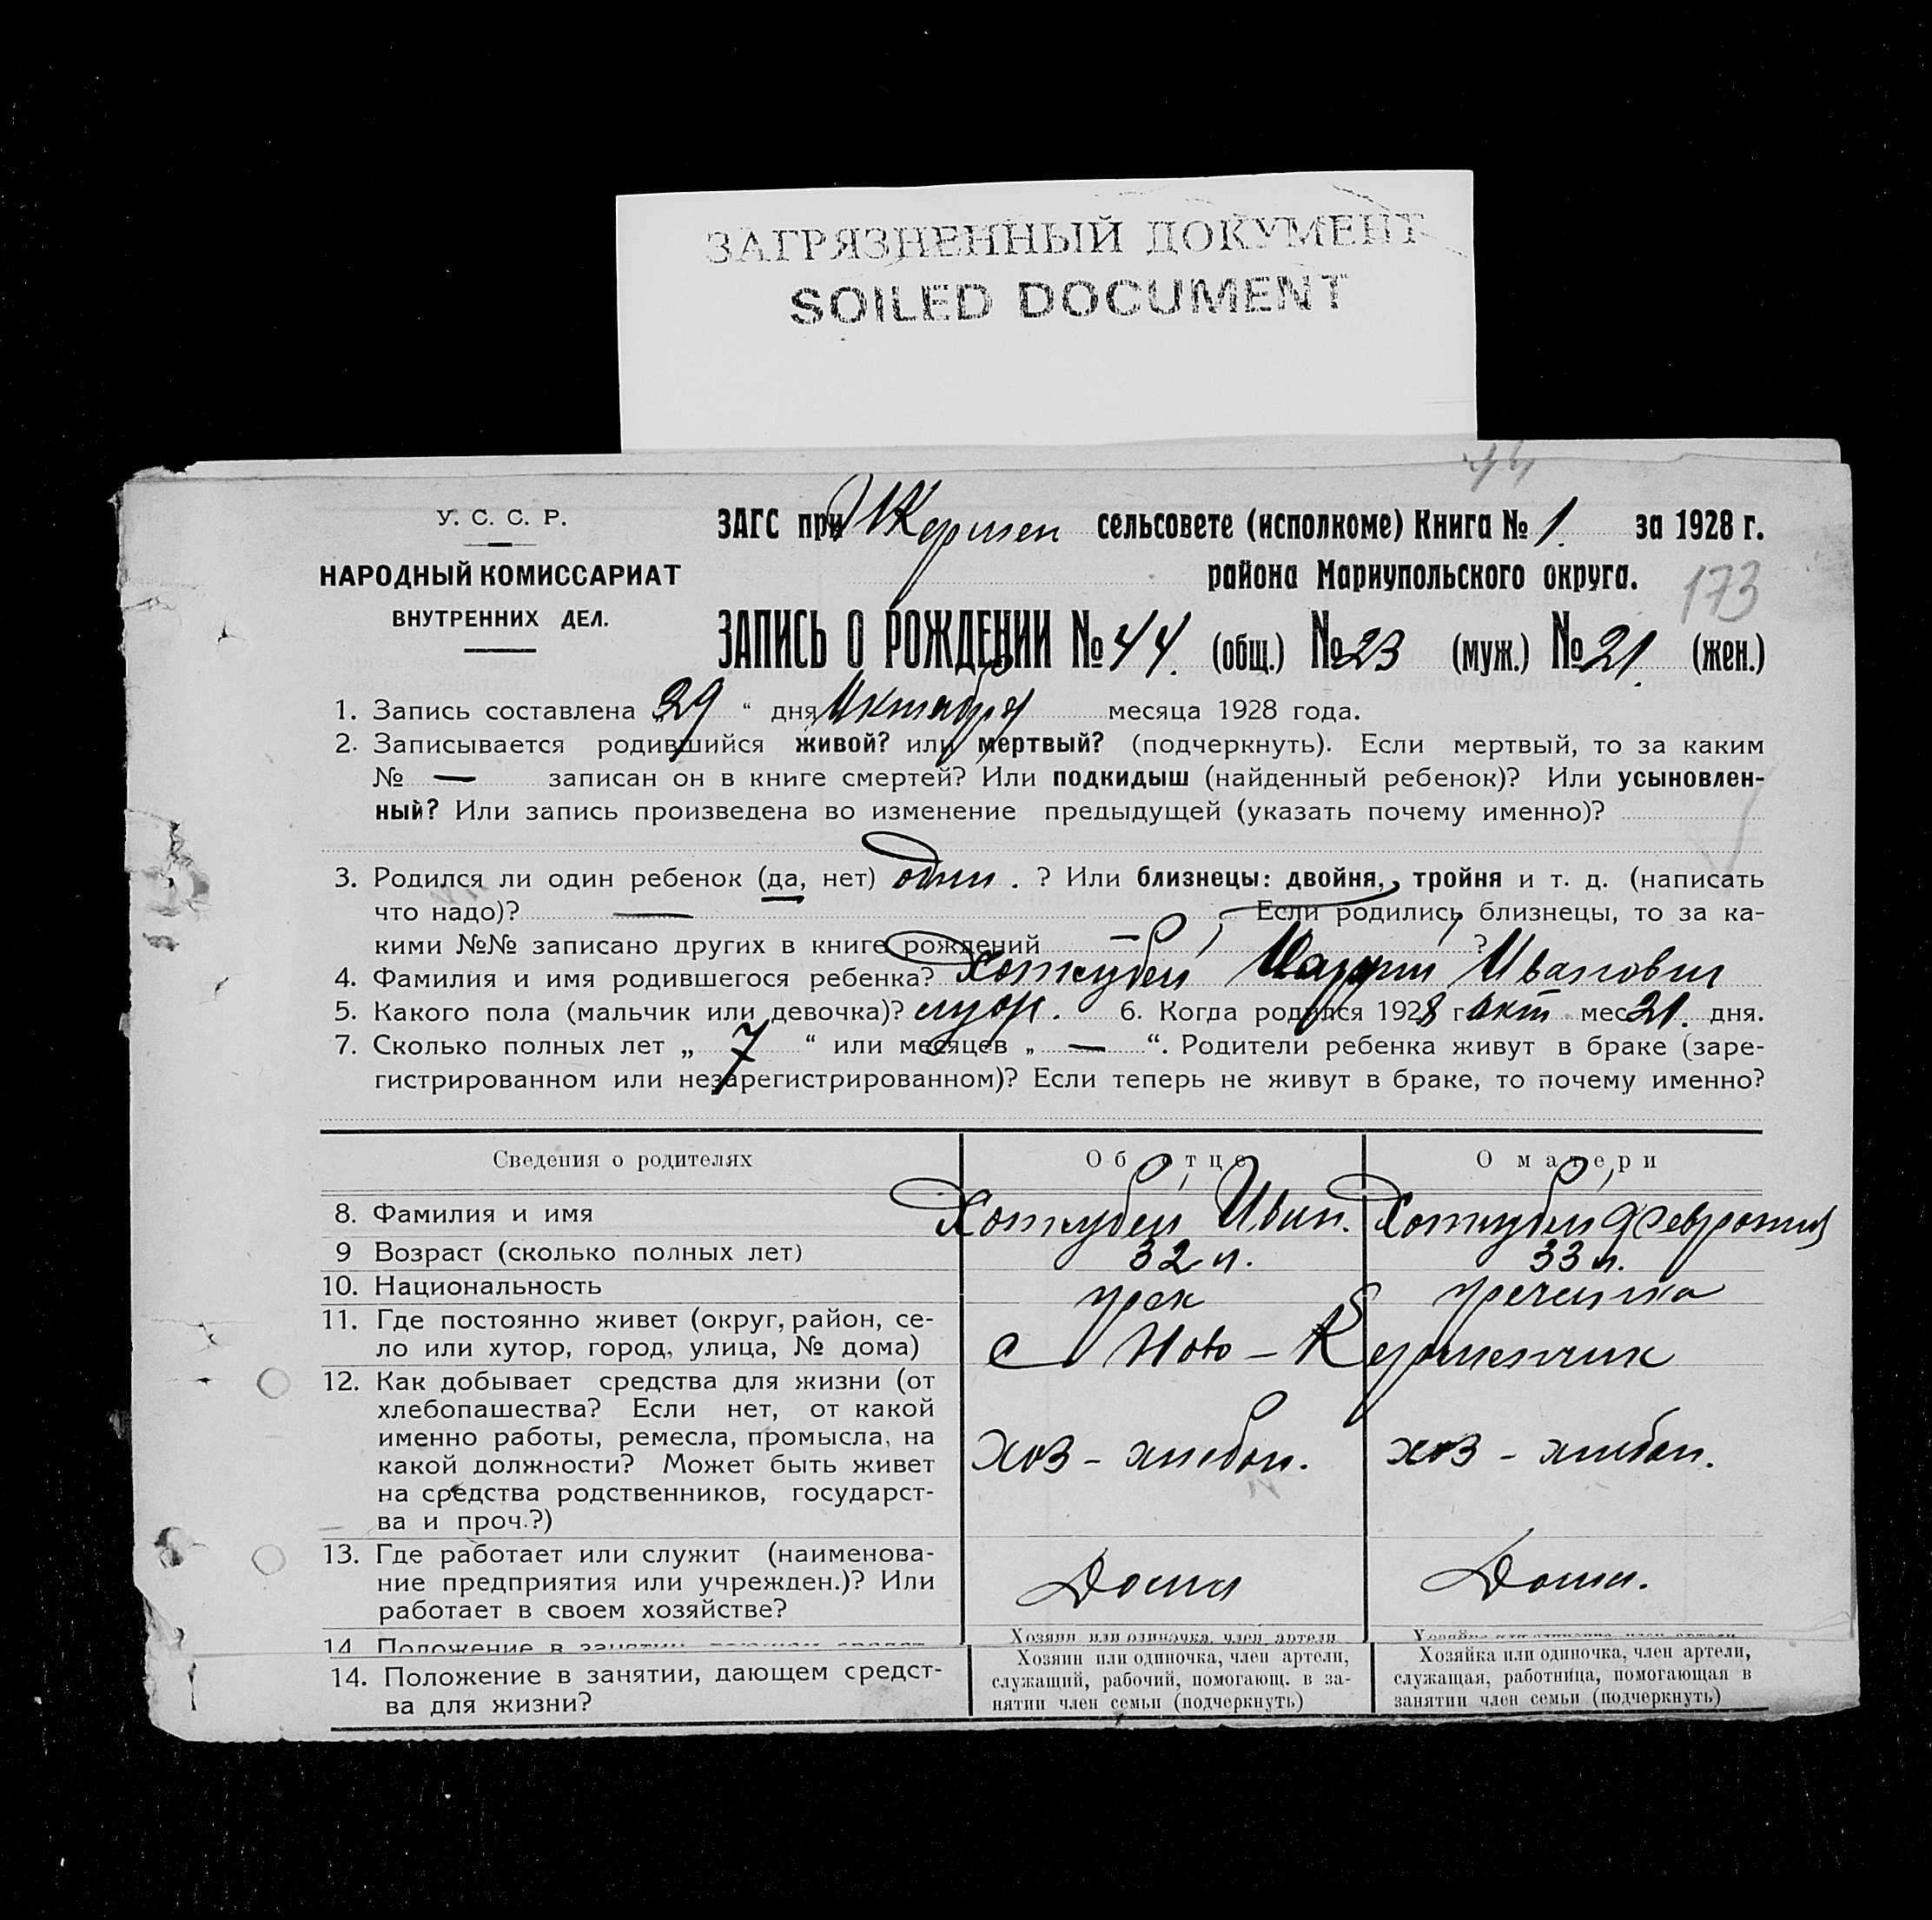 ЗАГРЯЗНЕННЫЙ ДОКУМЕНТ
SOILED DOCUMENT
44
У. С. С. Р.
НАРОДНЫЙ КОМИССАРИАТ
ВНУТРЕННИХ ДЕЛ.
ЗАГС при Н Кермен сельсовете (исполкоме) Книга № 1. за 1928 г.
района Мариупольского округа.
173
ЗАПИСЬ О РОЖДЕНИИ № 44. (общ.) № 23 (муж.) № 21. (жен.)
1. Запись составлена 29 “ дня Октября месяца 1928 года.
2. Записывается родившийся живой? или мертвый? (подчеркнуть). Если мертвый, то за каким
№ — записан он в книге смертей? Или подкидыш (найденный ребенок)? Или усыновлен-
ный? Или запись произведена во изменение предыдущей (указать почему именно)?
3. Родился ли один ребенок (да, нет) один . ? Или близнецы: двойня, тройня и т. д. (написать
что надо)? — Если родились близнецы, то за ка-
кими №№ записано других в книге рождений — ?
4. Фамилия и имя родившегося ребенка? Хотлубей Иванович
5. Какого пола (мальчик или девочка)? муж. 6. Когда родился 1928 г. окт мес 21. дня.
7. Сколько полных лет „ 7 “ или месяцев „ — “. Родители ребенка живут в браке (заре-
гистрированном или незарегистрированном)? Если теперь не живут в браке, то почему именно?
Сведения о родителях Об отце О матери
8. Фамилия и имя Хотлубей Иван. Хотлубей Феврония
9 Возраст (сколько полных лет) 32 л. 33 л.
10. Национальность грек гречанка
11. Где постоянно живет (округ, район, се-
ло или хутор, город, улица, № дома) с Ново - Керменчик
12. Как добывает средства для жизни (от
хлебопашества? Если нет, от какой
именно работы, ремесла, промысла, на
какой должности? Может быть живет
на средства родственников, государст-
ва и проч.?)
хоз - хлебоп. хоз - хлебоп.
13. Где работает или служит (наименова-
ние предприятия или учрежден.)? Или
работает в своем хозяйстве?
Дома Дома.
14. Положение в занятии,
Хозяин или одиночка, член артели
14. Положение в занятии, дающем средст-
ва для жизни?
Хозяин или одиночка, член артели,
служащий, рабочий, помогающ. в за-
нятии член семьи (подчеркнуть)
Хозяйка или одиночка, член артели,
служащая, работница, помогающая в
занятии член семьи (подчеркнуть)